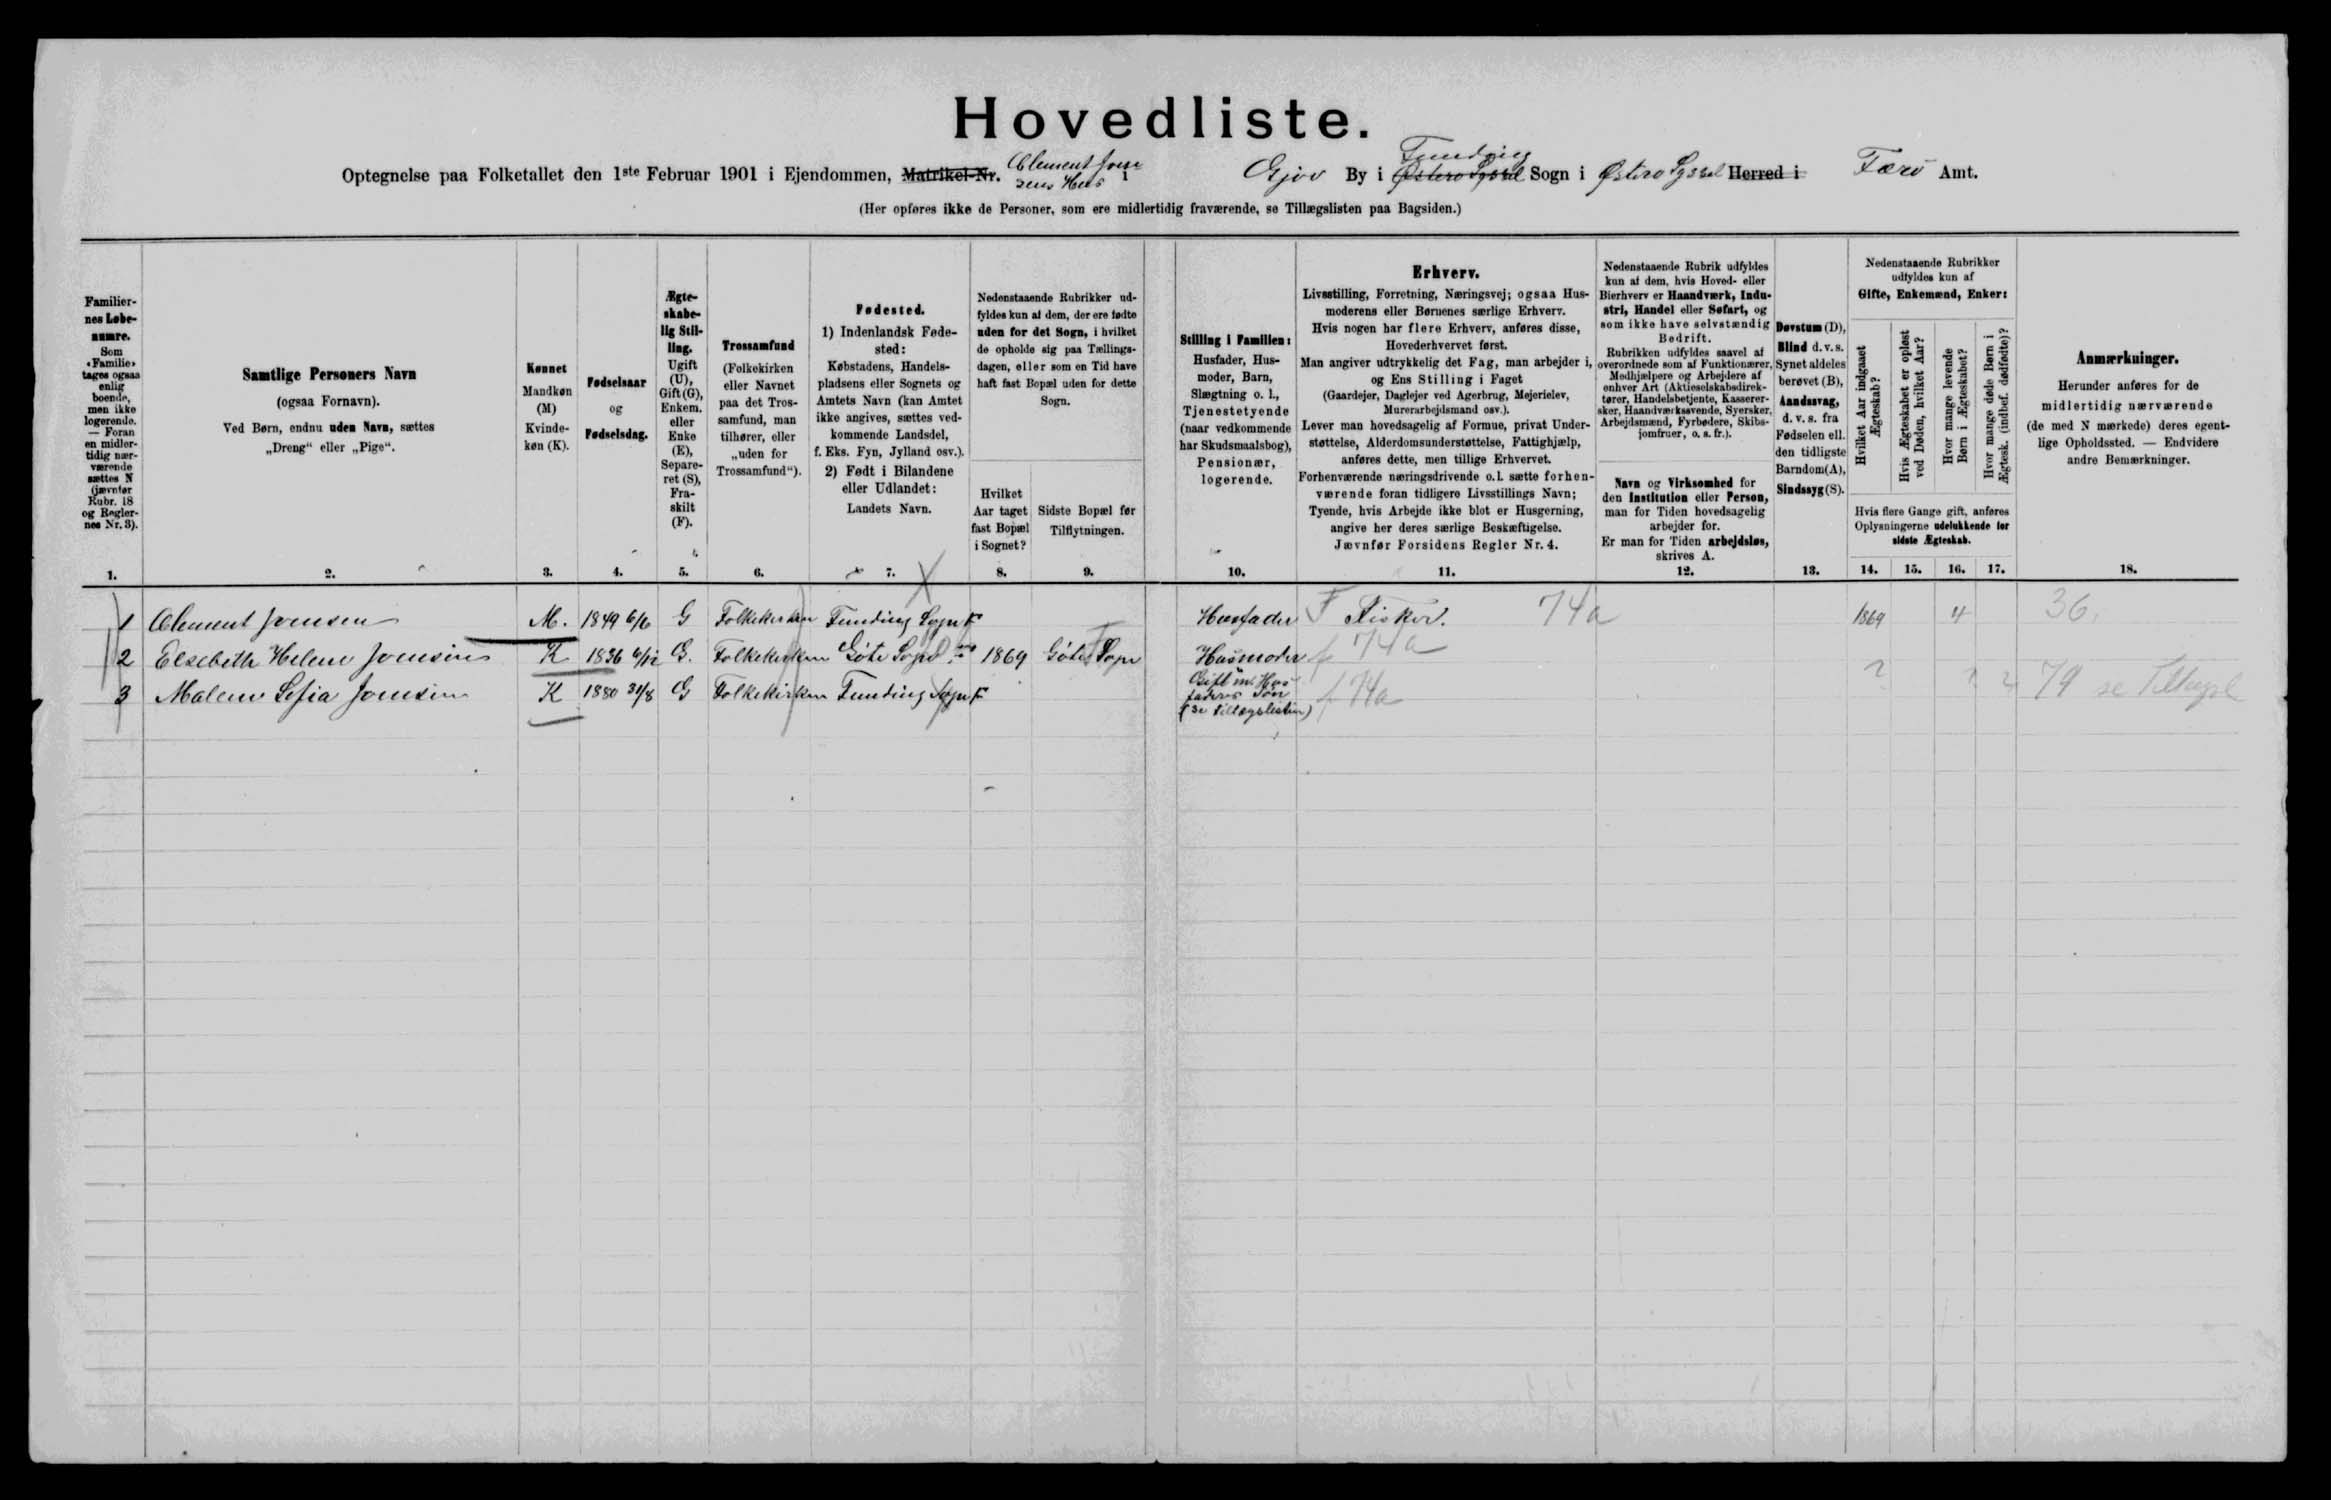 Hovedliste.
Optegnelse paa Folketallet den 1ste Februar 1901 i Ejendommen, Matrikel-Nr. Clement Joen-
sens Hus i Gjov By i Østero Syssel Funding Sogn i Østero Syssel Herred i Færø Amt.
(Her opføres ikke de Personer, som ere midlertidig fraværende, se Tillægslisten paa Bagsiden.)
Familier-
nes Løbe-
numre.
Som
«Familie»
tages ogsaa
enlig
boende,
men ikke
logerende.
— Foran
en midler-
tidig nær-
værende
sættes N
(jævnfør
Rubr. 18
og Regler-
nes Nr. 3).
1.
Samtlige Personers Navn
(ogsaa Fornavn).
Ved Børn, endnu uden Navn, sættes
„Dreng“ eller „Pige“.
2.
Kønnet
Mandkøn
(M)
Kvinde-
køn (K).
3.
Fødselsaar
og
Fødselsdag.
4.
Ægte-
skabe-
lig Stil-
ling.
Ugift
(U),
Gift (G),
Enkem.
eller
Enke
(E),
Separe-
ret (S),
Fra-
skilt
(F).
5.
Trossamfund
(Folkekirken
eller Navnet
paa det Tros-
samfund, man
tilhører, eller
„uden for
Trossamfund“).
6.
Fødested.
1) Indenlandsk Føde-
sted:
Købstadens, Handels-
pladsens eller Sognets og
Amtets Navn (kan Amtet
ikke angives, sættes ved-
kommende Landsdel,
f. Eks. Fyn, Jylland osv.).
2) Født i Bilandene
eller Udlandet:
Landets Navn.
7.
Nedenstaaende Rubrikker ud-
fyldes kun af dem, der ere fødte
uden for det Sogn, i hvilket
de opholde sig paa Tællings-
dagen, eller som en Tid have
haft fast Bopæl uden for dette
Sogn.
Hvilket
Aar taget
fast Bopæl
i Sognet?
8.
Sidste Bopæl før
Tilflytningen.
9.
Stilling i Familien:
Husfader, Hus-
moder, Barn,
Slægtning o. l.,
Tjenestetyende
(naar vedkommende
har Skudsmaalsbog),
Pensionær,
logerende.
10.
Erhverv.
Livsstilling, Forretning, Næringsvej; ogsaa Hus-
moderens eller Børnenes særlige Erhverv.
Hvis nogen har flere Erhverv, anføres disse,
Hovederhvervet først.
Man angiver udtrykkelig det Fag, man arbejder i,
og Ens Stilling i Faget
(Gaardejer, Daglejer ved Agerbrug, Mejerielev,
Murerarbejdsmand osv.).
Lever man hovedsagelig af Formue, privat Under-
støttelse, Alderdomsunderstøttelse, Fattighjælp,
anføres dette, men tillige Erhvervet.
Forhenværende næringsdrivende o. l. sætte forhen-
værende foran tidligere Livsstillings Navn;
Tyende, hvis Arbejde ikke blot er Husgerning,
angive her deres særlige Beskæftigelse.
Jævnfør Forsidens Regler Nr. 4.
11.
Nedenstaaende Rubrik udfyldes
kun af dem, hvis Hoved- eller
Bierhverv er Haandværk, Indu-
stri, Handel eller Søfart, og
som ikke have selvstændig
Bedrift.
Rubrikken udfyldes saavel af
overordnede som af Funktionærer,
Medhjælpere og Arbejdere af
enhver Art (Aktieselskabsdirek-
tører, Handelsbetjente, Kasserer-
sker, Haandværkssvende, Syersker,
Arbejdsmænd, Fyrbødere, Skibs-
jomfruer, o. s. fr.).
Navn og Virksomhed for
den Institution eller Person,
man for Tiden hovedsagelig
arbejder for.
Er man for Tiden arbejdsløs,
skrives A.
12.
Døvstum (D),
Blind d. v. s.
Synet aldeles
berøvet (B),
Aandssvag,
d. v. s. fra
Fødselen ell.
den tidligste
Barndom (A),
Sindssyg (S).
13.
Nedenstaaende Rubrikker
udfyldes kun af
Gifte, Enkemænd, Enker:
Hvilket Aar indgaaet
Ægteskab?
Hvis Ægteskabet er opløst
ved Døden, hvilket Aar?
Hvor mange levende
Børn i Ægteskabet?
Hvor mange døde Børn i
Ægtesk. (indbef. dødfødte)?
Hvis flere Gange gift, anføres
Oplysningerne udelukkende for
sidste Ægteskab.
14. 15. 16. 17.
Anmærkninger.
Herunder anføres for de
midlertidig nærværende
(de med N mærkede) deres egent-
lige Opholdssted. — Endvidere
andre Bemærkninger.
18.
1 Clement Joensen M. 1849 6/6 G Folkekirken Funding Sogn F Husfader F Fisker. 74a 1869 4 36.
2 Elsebeth Helene Joensen K 1836 6/12 G. Folkekirken Göte Sogn 1869 Göte Sogn Husmoder f 74a
3 Malene Sofia Joensen K 1880 31/8 G Folkekirken Funding Sogn F Gift m. Hus-
faderes Søn
(se tillægslisten) f 74a ? ? 79 se Tillægsl